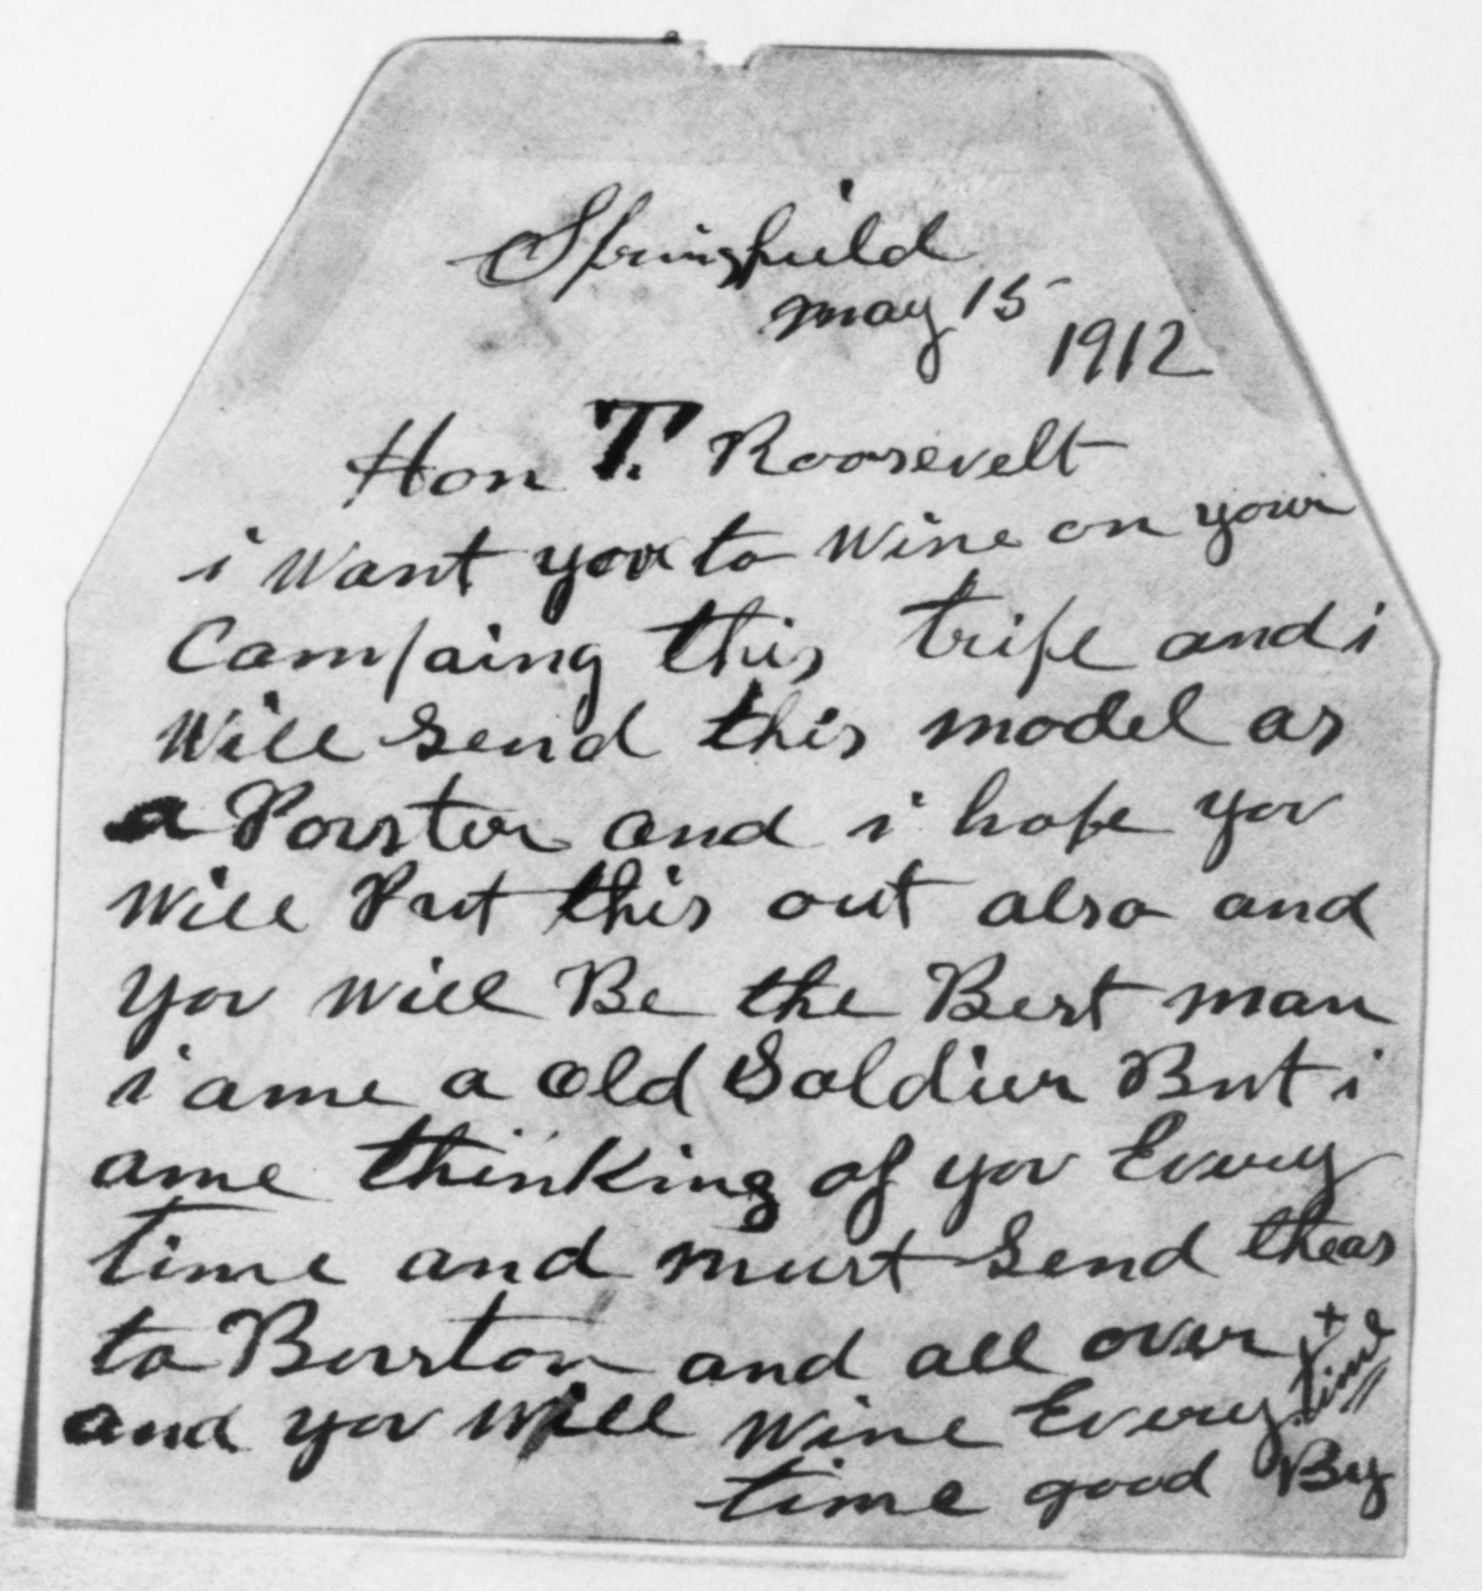 Springfield
may 15
1912
Hon T. Roosevelt
i Want you to Wine on your
Campaing this tripe and i
Will Send this model as
a Pouster and i hope you
Will Put this out also and
you will Be the Best man
i ame a old Soldier But i
ame thinking of you Every
time and must Send theas
to Bouston and all over +
and you will Wine Every time
time good By